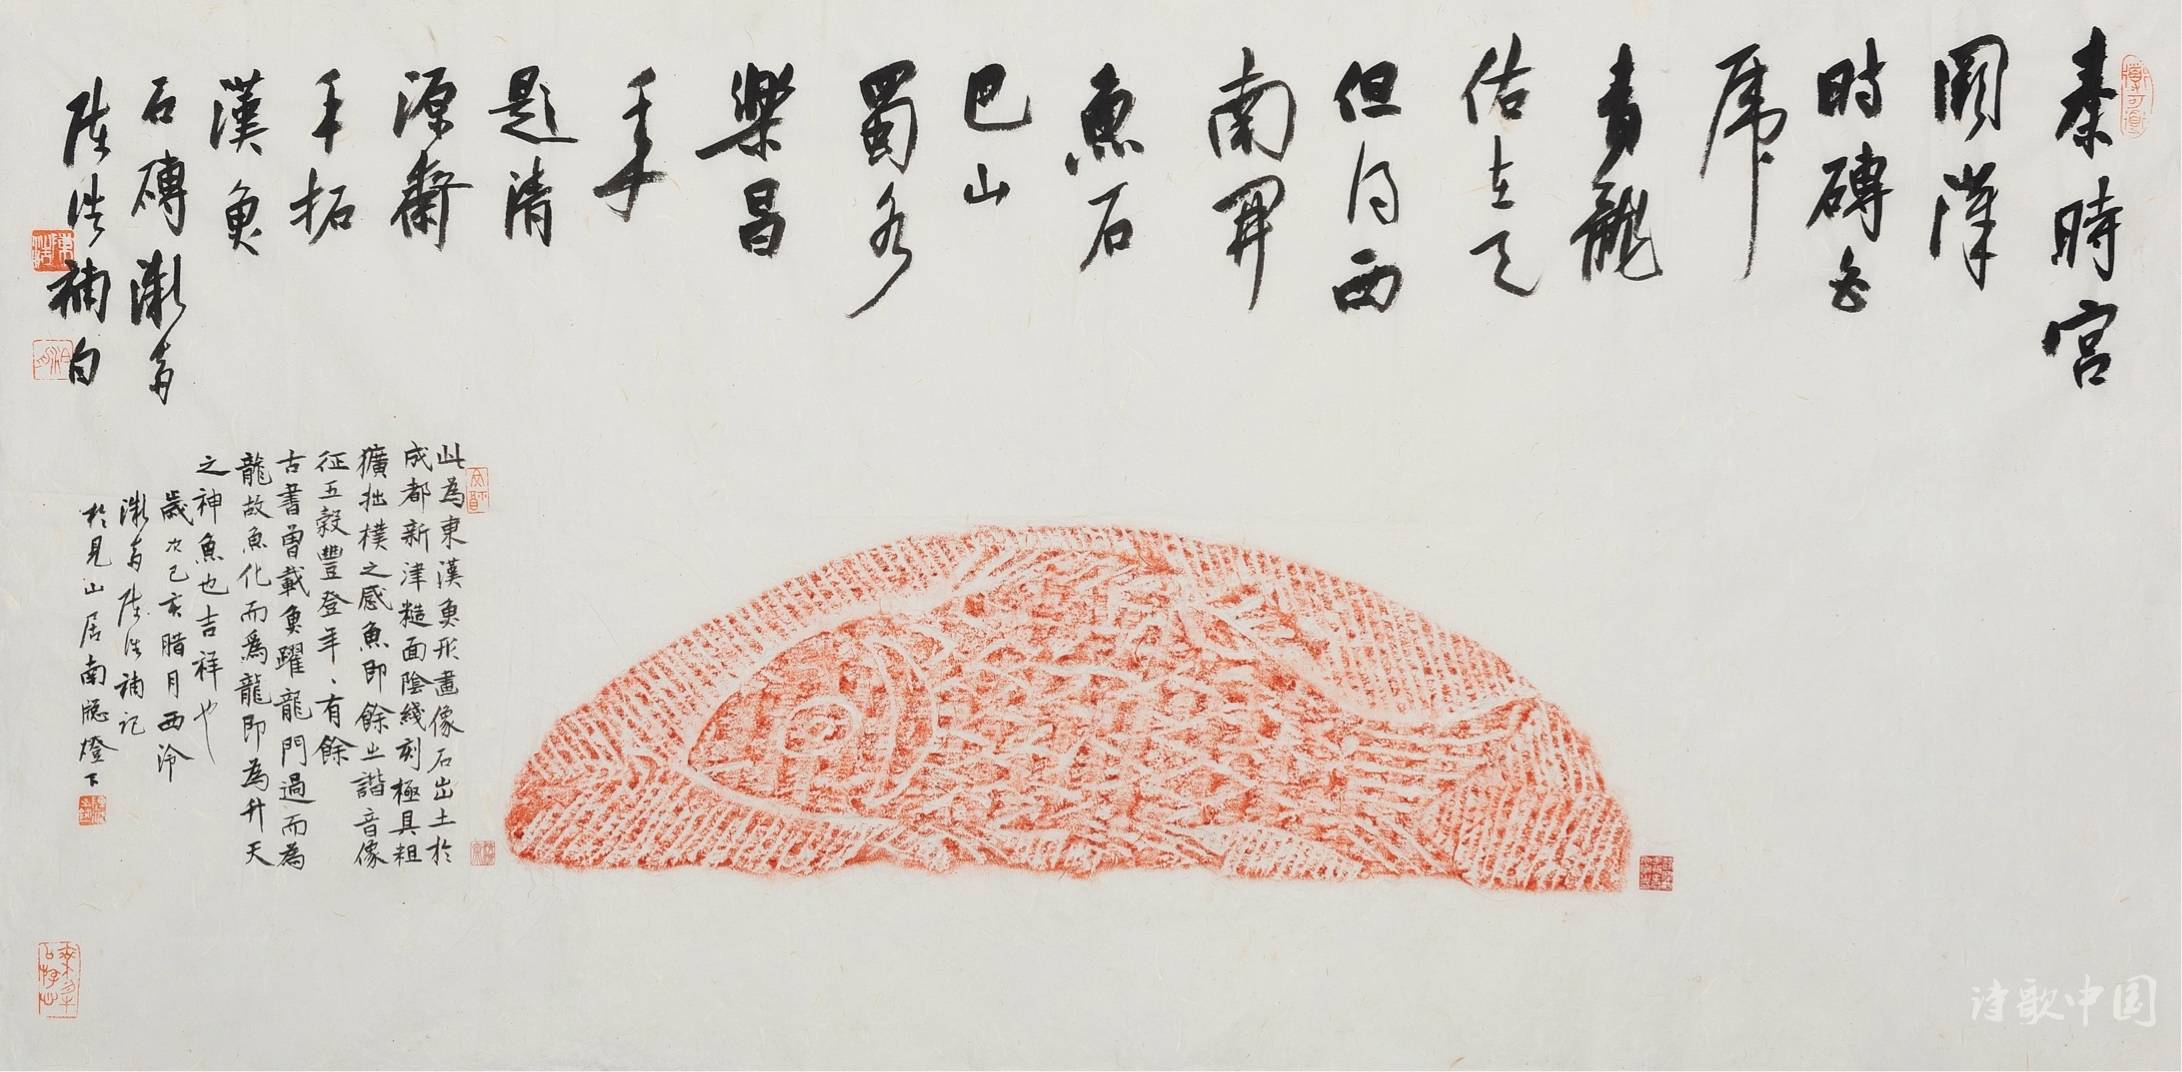 秦時宮
闕漢
時磚白
虎
青龍
佑在天
但得西
南開
魚石
巴山
蜀水
樂昌
年
題清
源齋
手拓
漢魚
石磚漱齋
陳浩補白
此為東漢魚形畫像石出土於
成都新津糙面陰綫刻極具粗
獷拙樸之感魚即餘之諧音像
征五穀豐登年、有餘
古書曾載魚躍龍門過而為
龍故魚化而為龍即為升天
之神魚也吉祥也
歲次己亥腊月西泠
漱齋陳浩補記
於見山居南牕燈下
诗歌中国